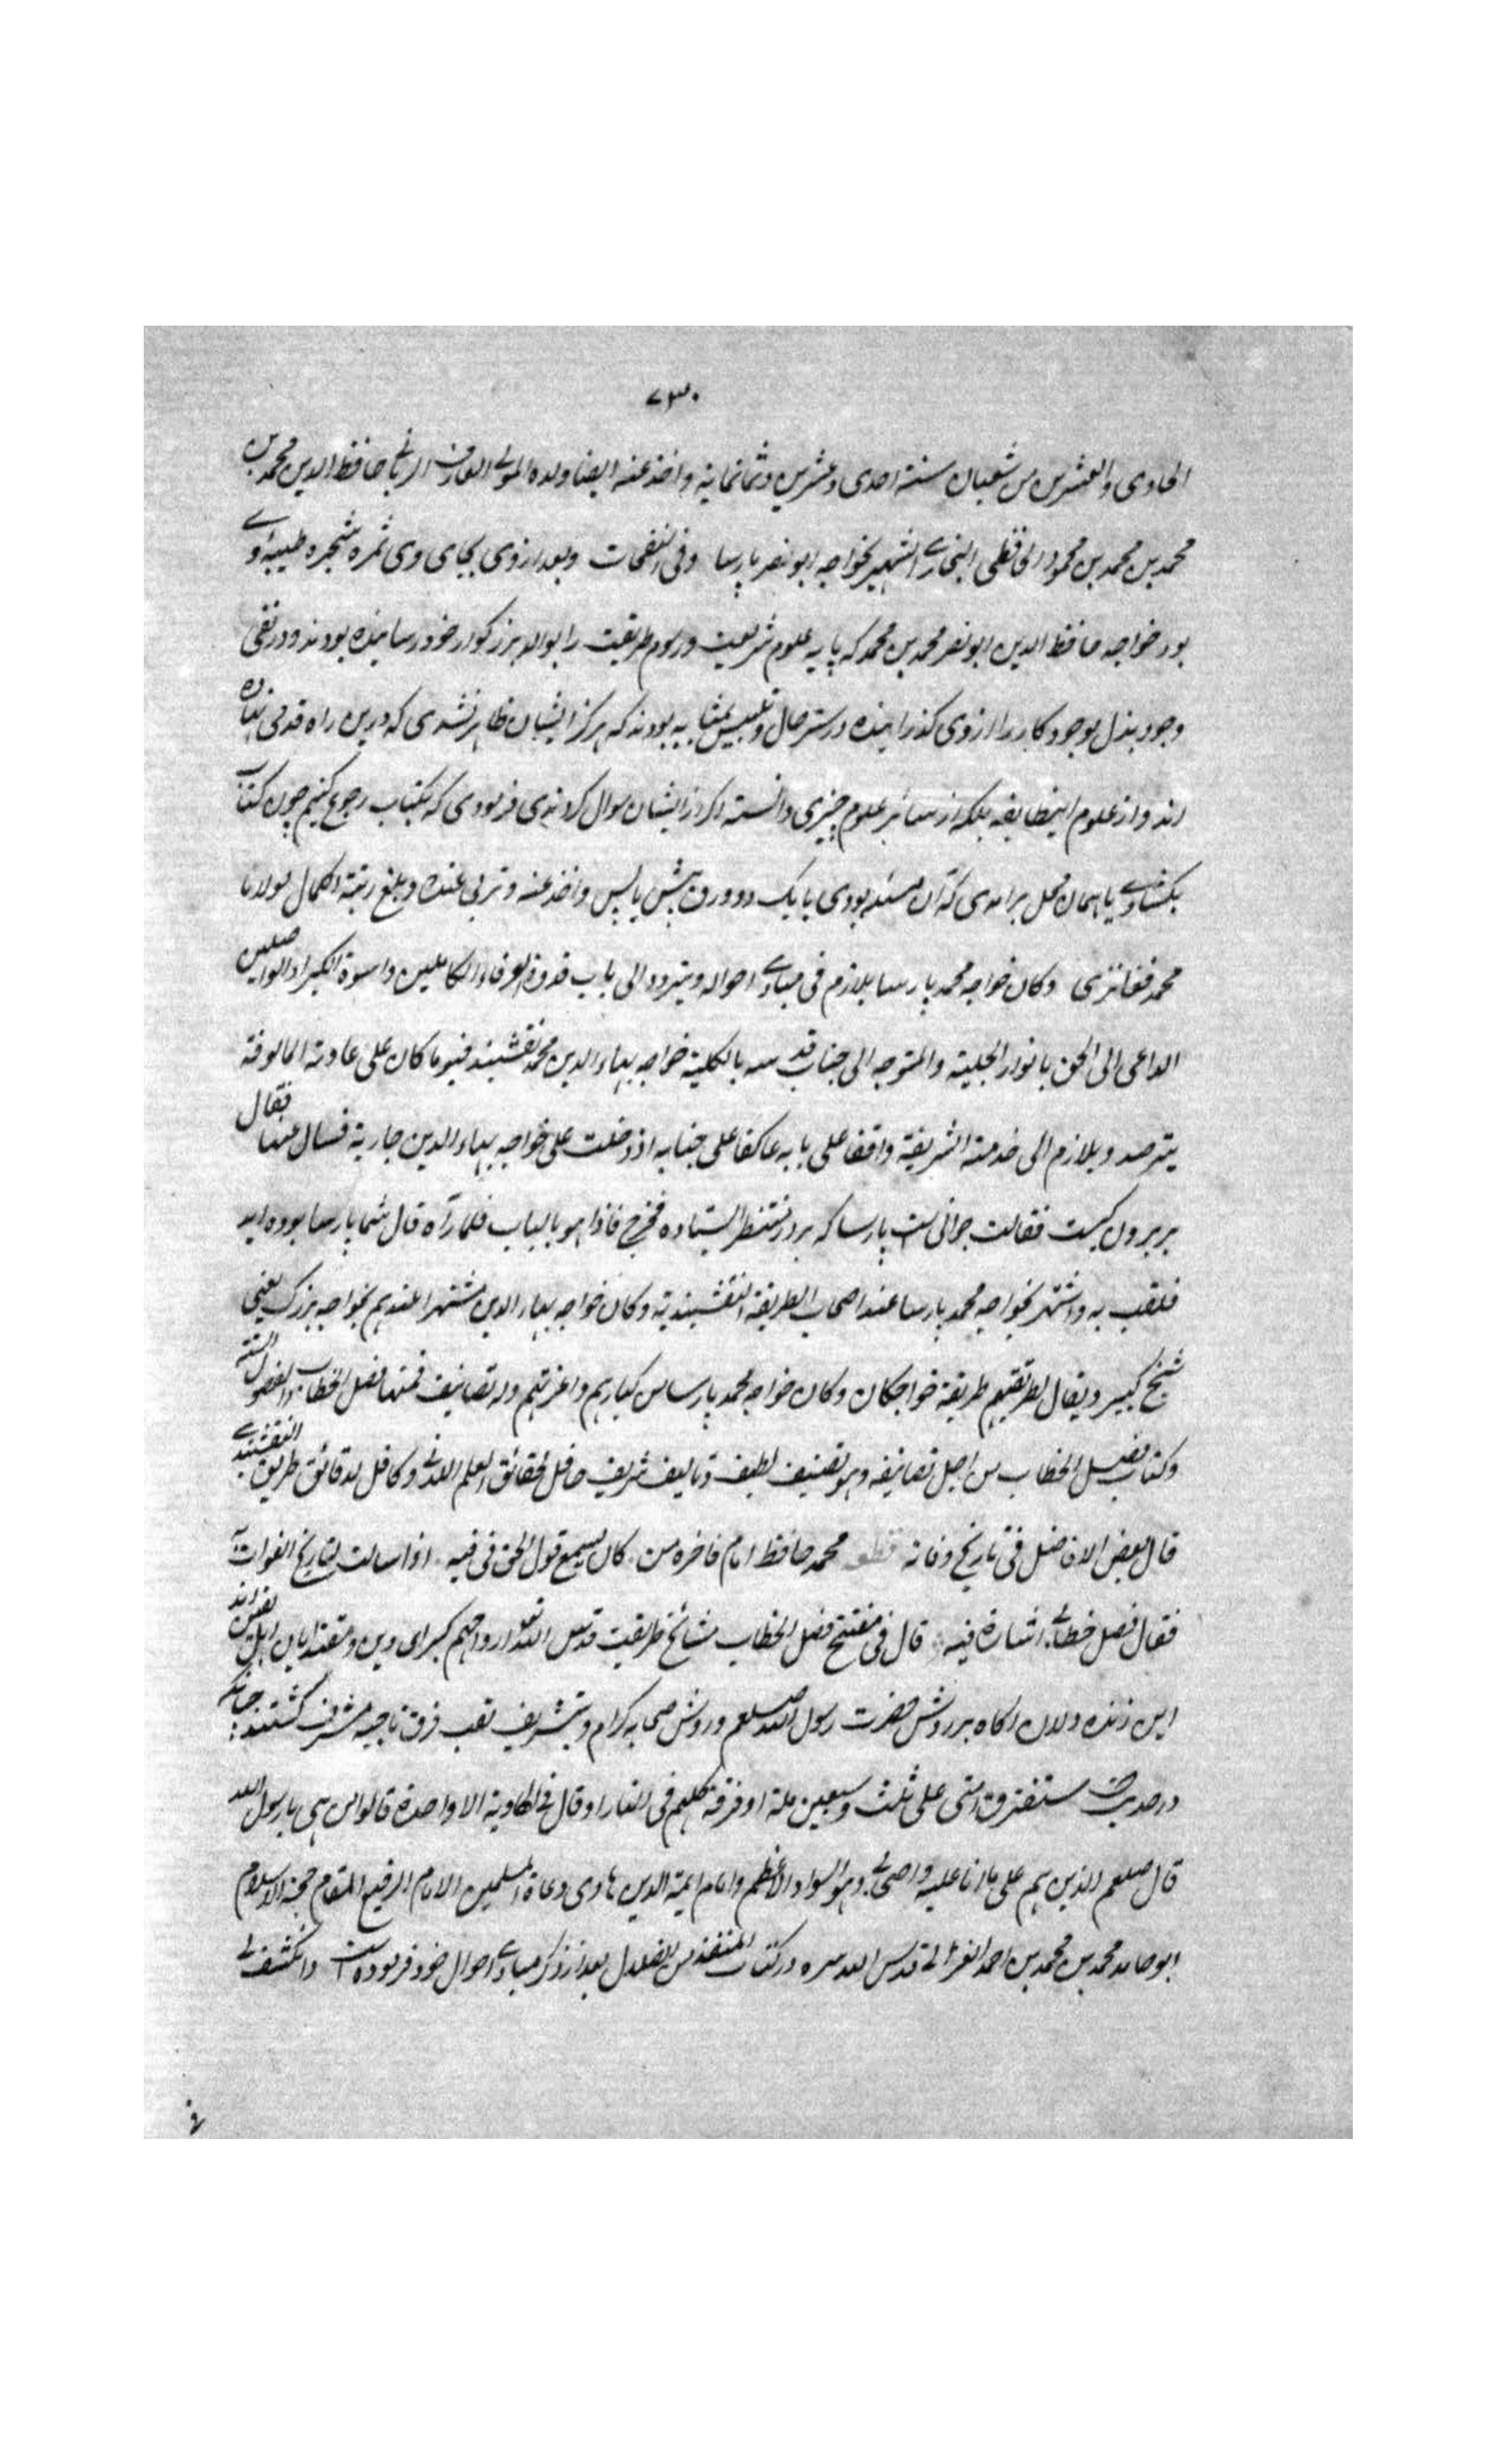 ٧٣٠
الحادی والعشرین من شعبان سنة احدی وعشرین وثمانمایة واخذ عنه ایضا ولده المولی العارف الربانی حافظ الدین محمد بن
محمد بن محمد بن محمود الحافظی البخاری الشهیر بخواجه ابو نصر پارسا وفی النفحات وبعد از وی بجای وی ثمره شجره طیبه وی
بود خواجه حافظ الدین ابو نصر محمد بن محمد که پایه علوم شریعت ورسوم طریقت را بوالد بزرکوار خود رسانیده بودند ودر نفی
وجود بذل موجود کار را از وی کذرانیده در ستر حال وتلبیس بمثابه بودند که هرکز از ایشان ظاهر نشدی که درین راه قدمی نهاده
اند واز علوم اینطایفه بلکه از سائر علوم چیزی دانسته اکر از ایشان سوال کردندی فرمودی که بکتاب رجوع کنیم چون کتاب
بکشادی یا همان محل برامدی که آن مسئله بودی یا یک دو ورق پیش یا پس واخذ عنه وتربی عنده وبلغ رتبة الکمال مولانا
محمد فغانزی وکان خواجه محمد پارسا یلازم فی مبادی احواله ویتردد الی باب قدوة العرفاء الکاملین واسوة الکبراء الواصلین
الداعی الی الحق بانوار الجلیة والمتوجه الی جناب قدسه بالکلیة خواجه بهاء الدین محمد نقشبند فیوما کان علی عادته المالوفة
یترصد ویلازم الی خدمته الشریفة واقفا علی بابه عاکفا علی جنابه اذ دخلت علی خواجه بهاء الدین جاریة فسال عنها فقال
بر بیرون کیست فقالت جوانی است پارسا که بر در منتظر ایستاده فخرج فاذا هو بالباب فلما رآه قال شما پارسا بوده اید
فلقب به واشتهر بخواجه محمد پارسا عند اصحاب الطریقة النقشبندیة وکان خواجه بهاء الدین مشتهرا عندهم بخواجه بزرک یعنی
شیخ کبیر ویقال لطریقتهم طریقة خواجکان وکان خواجه محمد پارسا من کبارهم واعزتهم وله تصانیف فمنها فصل الخطاب والفصول الستة
وکتاب فصل الخطاب من اجل تصانیفه وهو تصنیف لطیف وتالیف شریف حافل لحقائق العلم اللدنی وکافل لدقائق طریق النقشبندی
قال بعض الافاضل فی تاریخ وفاته قطعه محمد حافظ امام فاخره من کان یسمع قول الحق فی فیه اذا سالت لتاریخ الفوات له
فقال فصل خطابی اشارة فیه قال فی مفتتح فصل الخطاب مشائخ طریقت قدس الله تعالی ارواحهم کبرای دین ومقتدایان اهل یقین اند
این زنده دلان اکاه بر روش حضرت رسول الله صلعم وروش صحابه کرام وبتشریف لقب فرق ناجیه مشرف کشتند چنانکه
در حدیث ستفترق امتی علی ثلث وسبعین ملة او فرقة کلهم فی النار او قال فی الهاویة الا واحدة قالوا من هی یا رسول الله
قال صلعم الذین هم علی ما انا علیه واصحابی وهو السواد الاعظم وامام ایمة الدین هادی دعاة المسلمین الامام الرفیع المقام حجة الاسلام
ابو حامد محمد بن محمد بن احمد الغزالی قدس الله سره در کتاب المنقذ من الضلال بعد از ذکر مبادی احوال خود فرموده است وانکشف لی
فی